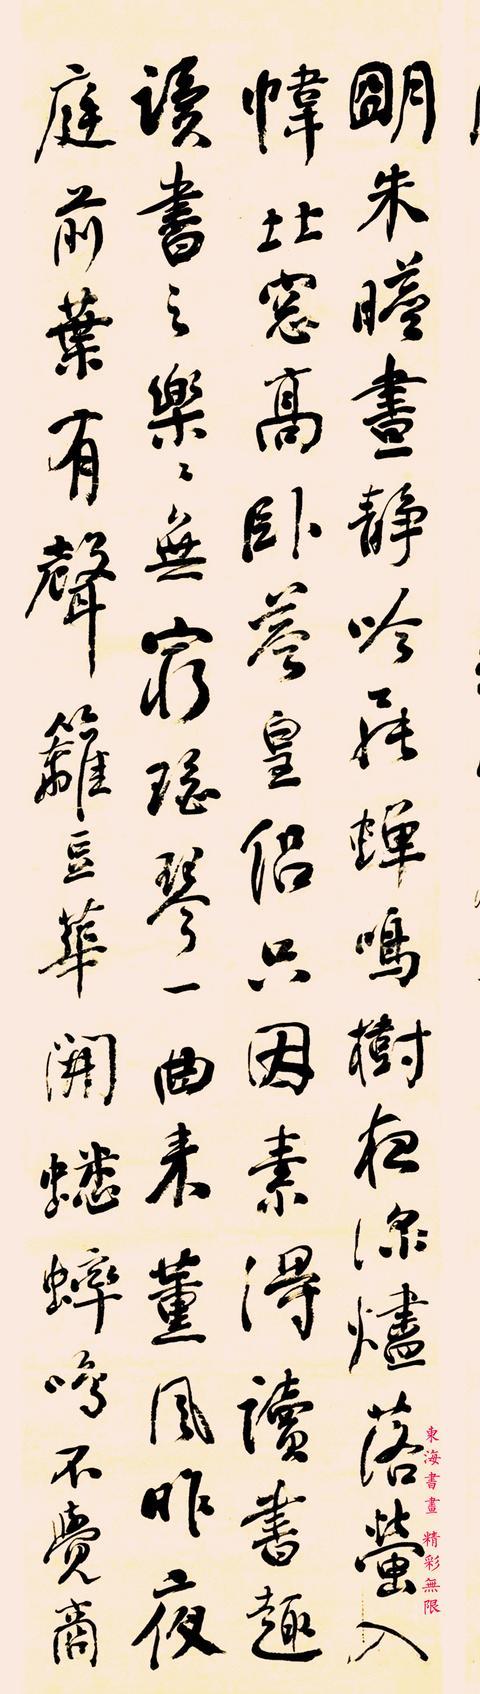 朙朱曦晝靜吟罷蟬鳴樹夜深燼落螢入
幃北窓高卧羲皇侶只因素得讀書趣
讀書之樂〻無窮瑤琴一曲来薫風昨夜
庭前葉有聲籬豆華開蟋蟀鳴不覺商
東海書畫 精彩無限